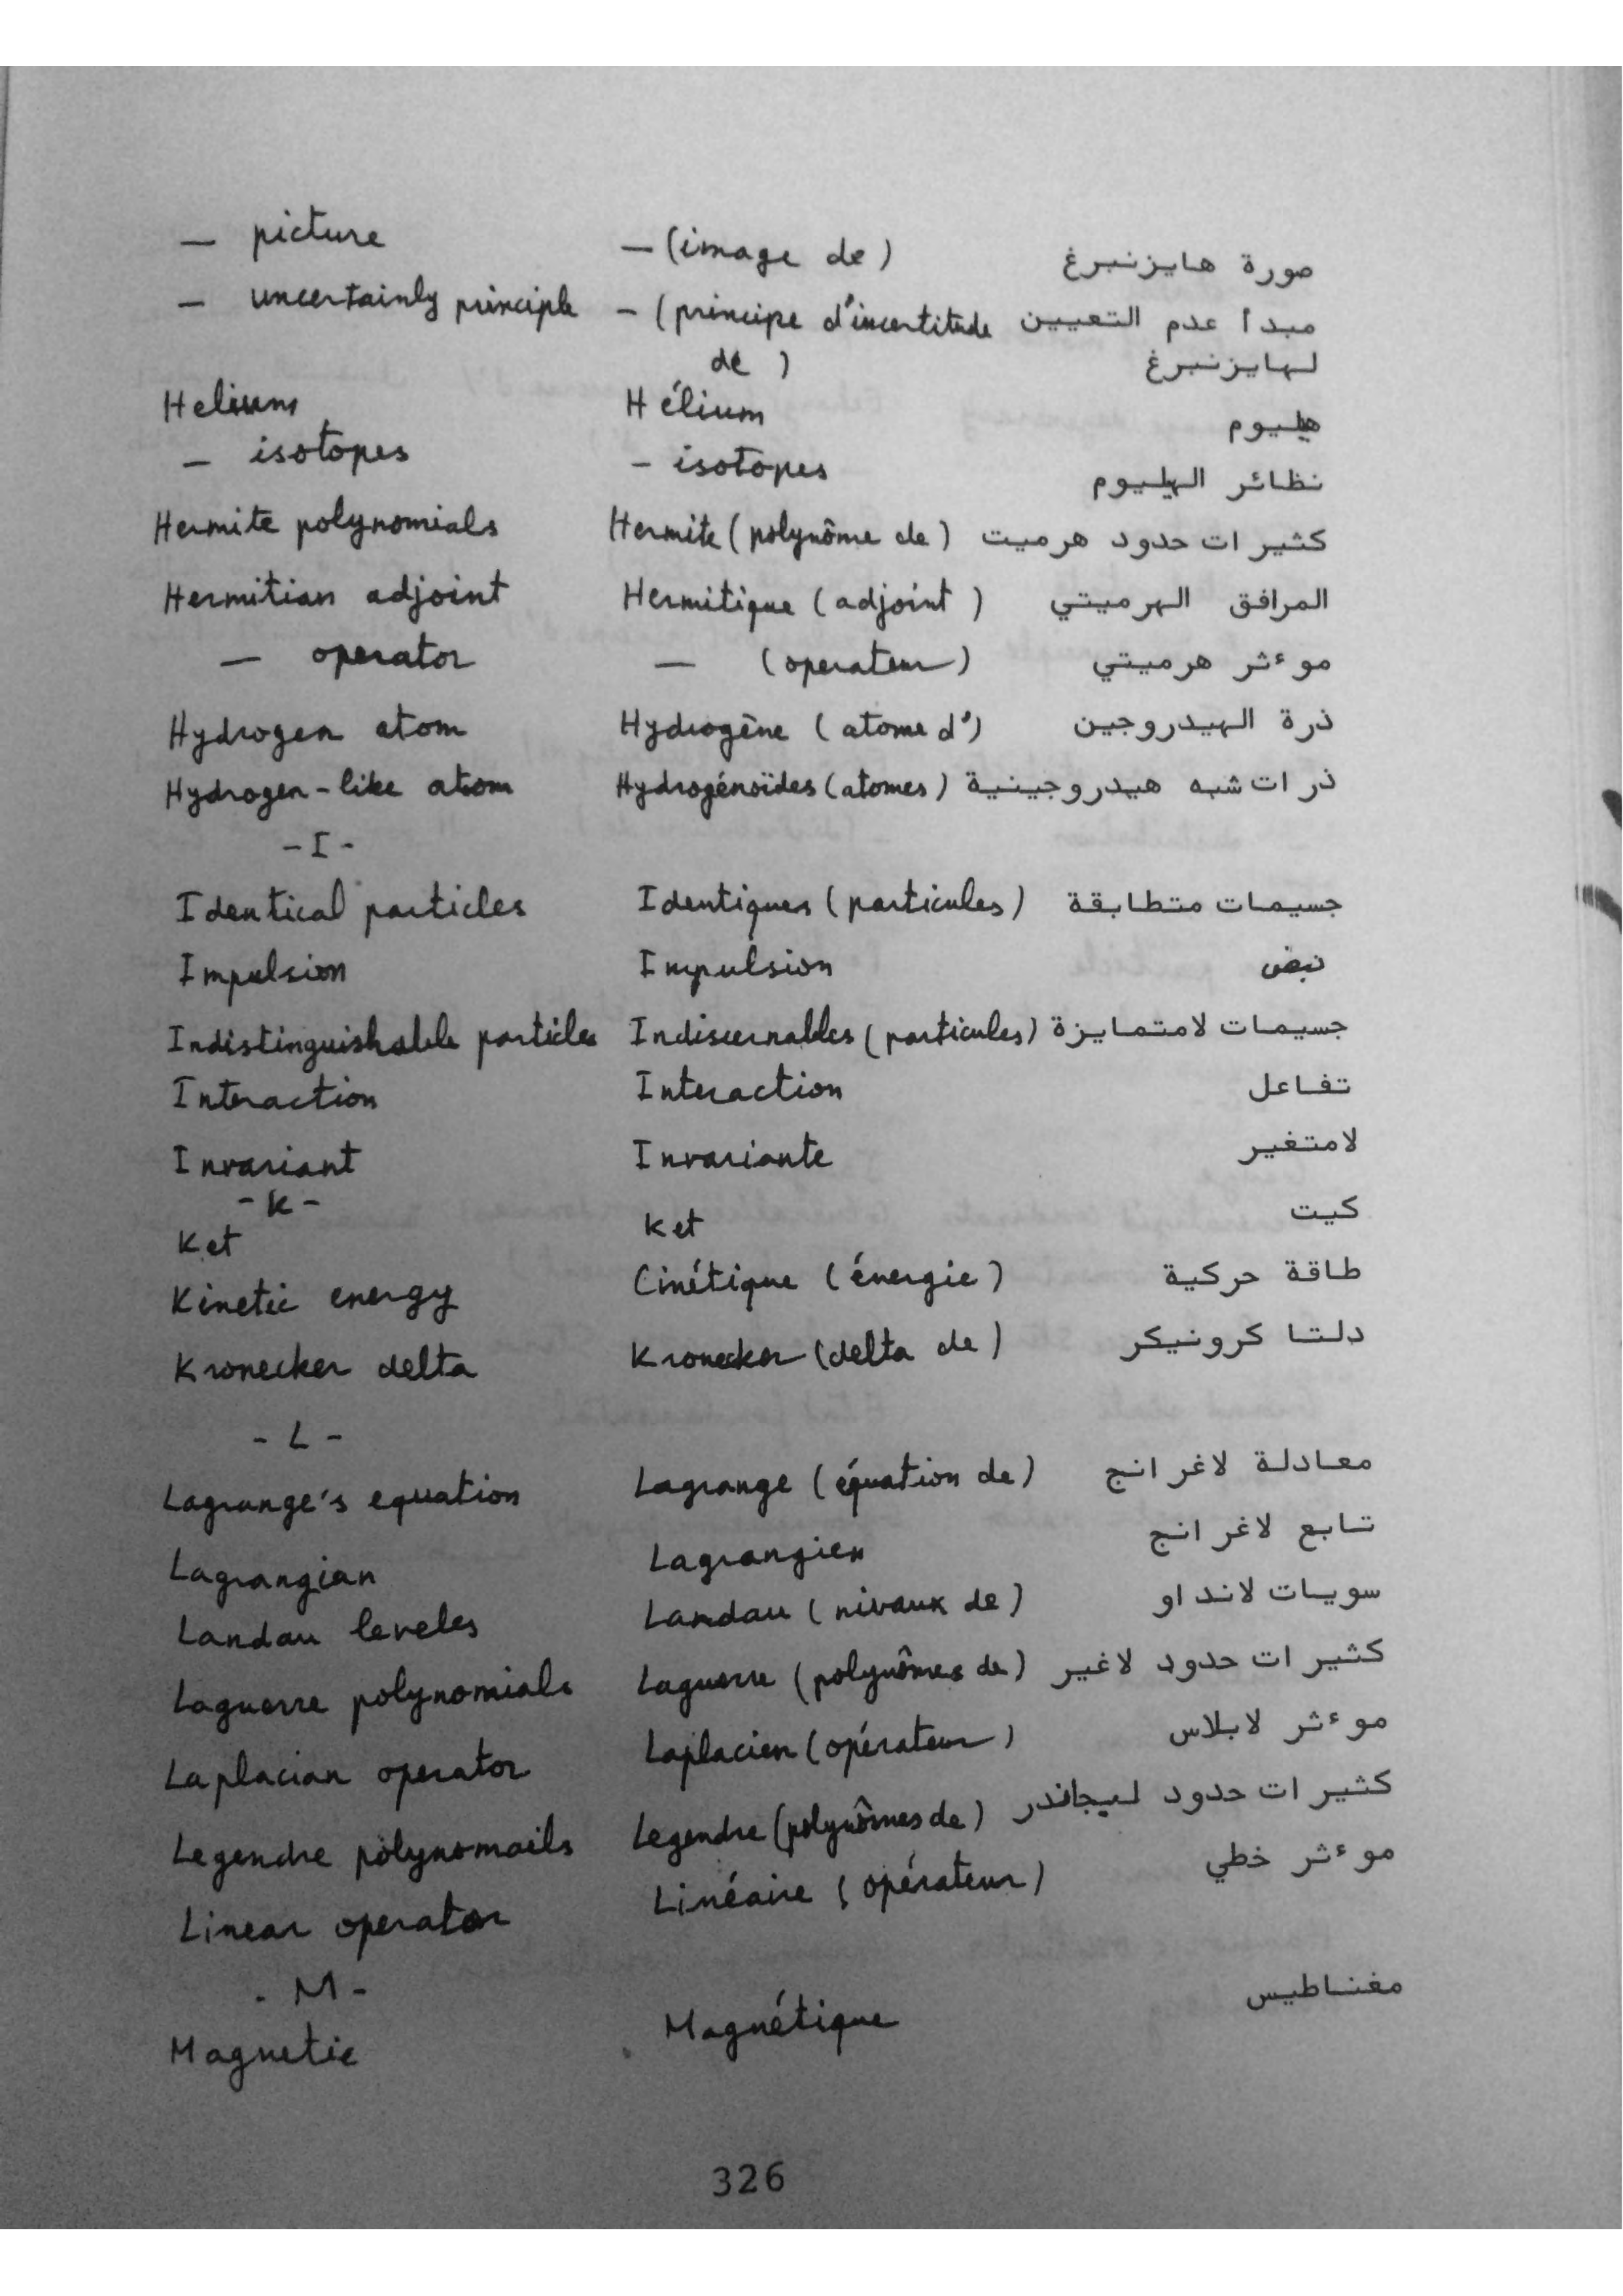 — picture — (image de) صورة هايزنبرغ
— uncertainly principle — (principe d'incertitude مبدأ عدم التعيين
de) لهايزنبرغ
Helium Hélium هيليوم
— isotopes — isotopes نظائر الهيليوم
Hermite polynomials Hermite (polynôme de) كثيرات حدود هرميت
Hermitian adjoint Hermitique (adjoint) المرافق الهرميتي
— operator — (operateur) موءثر هرميتي
Hydrogen atom Hydrogène (atome d') ذرة الهيدروجين
Hydrogen-like atom Hydrogénoïdes (atomes) ذرات شبه هيدروجينية
- I -
Identical particles Identiques (particules) جسيمات متطابقة
Impulsion Impulsion نبض
Indistinguishable particles Indiscernables (particules) جسيمات لامتمايزة
Interaction Interaction تفاعل
Invariant Invariante لامتغير
- K -
Ket Ket كيت
Kinetic energy Cinétique (énergie) طاقة حركية
Kronecker delta Kronecker (delta de) دلتا كرونيكر
- L -
Lagrange's equation Lagrange (équation de) معادلة لاغرانج
Lagrangian Lagrangien تابع لاغرانج
Landau leveles Landau (nivaux de) سويات لانداو
Laguerre polynomials Laguerre (polynômes de) كثيرات حدود لاغير
Laplacian operator Laplacien (opérateur) موءثر لابلاس
Legendre polynomails Legendre (polynômes de) كثيرات حدود ليجاندر
Linear operator Linéaire (opérateur) موءثر خطي
- M -
Magnetic Magnétique مغناطيس
326